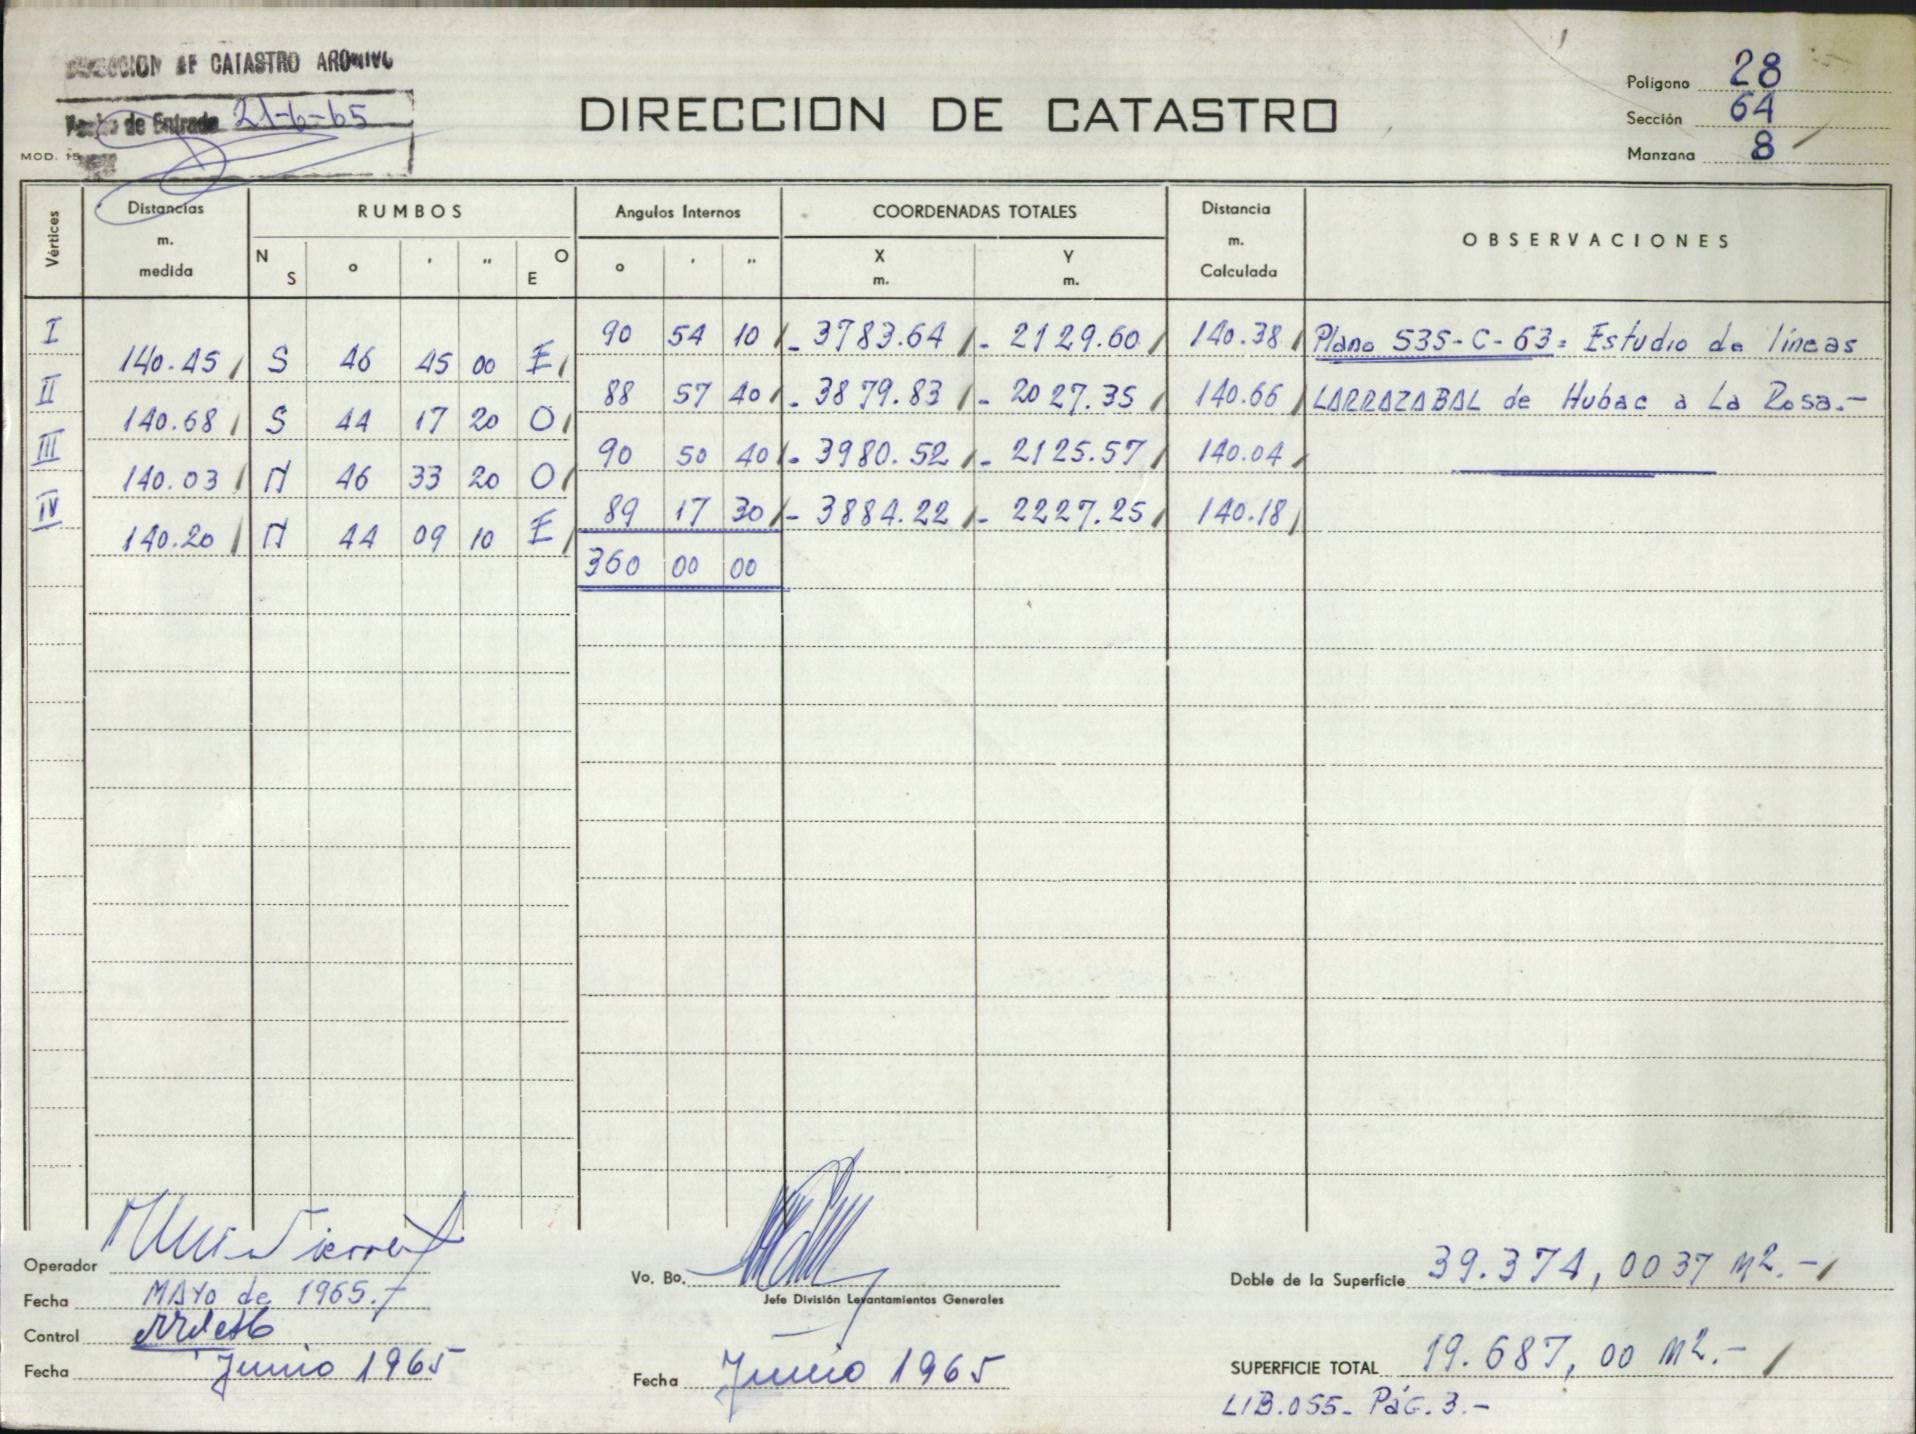 DIRECCION DE CATASTRO ARCHIVO
Fecha de Entrada 21-6-65
MOD. 15
DIRECCION DE CATASTRO
Polígono 28
Sección 64
Manzana 8
Vértices Distancias m. medida RUMBOS Angulos Internos COORDENADAS TOTALES Distancia m. Calculada OBSERVACIONES
N S ° ' " O E ° ' " X m. Y m.
I 90 54 10 - 3783.64 - 2129.60 140.38 Plano 535-C-63: Estudio de líneas
140.45 S 46 45 00 E
II 88 57 40 - 3879.83 - 2027.35 140.66 LARRAZABAL de Hubac a La Rosa.-
140.68 S 44 17 20 O
III 90 50 40 - 3980.52 - 2125.57 140.04
140.03 N 46 33 20 O
IV 89 17 30 - 3884.22 - 2227.25 140.18
140.20 N 44 09 10 E
360 00 00
Operador
Fecha MAYO de 1965.-
Control
Fecha Junio 1965
Vo. Bo.
Jefe División Levantamientos Generales
Fecha Junio 1965
Doble de la Superficie 39.374,0037 M2.-
SUPERFICIE TOTAL 19.687,00 M2.-
LIB.055- PÁG.3.-